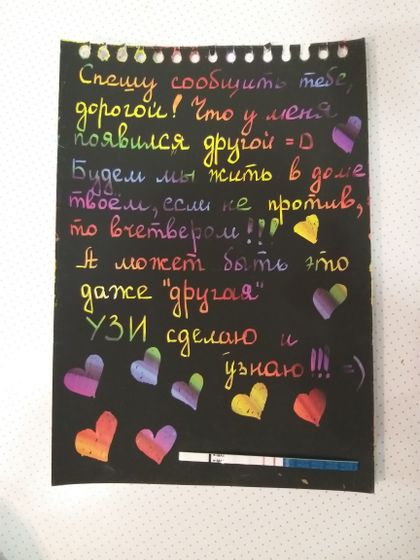 Спешу сообщить тебе,
дорогой! Что у меня
появился другой =D
Будем мы жить в доме
твоём, если не против,
то вчетвером!!!
А может быть это
даже "другая"
УЗИ сделаю и
узнаю!!! =)